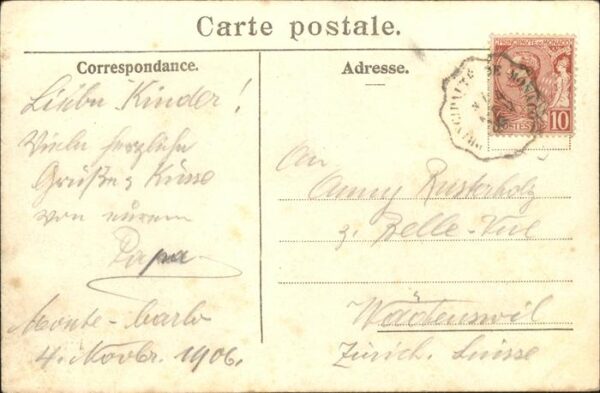 Carte postale.
Correspondance.
Adresse.
PRINCIPAUTÉ DE MONACO
POSTES
10
Liebe Kinder!
Viele herzliche
Grüße & Küsse
von eurem
Papa
Monte-Carlo
4. Novbr. 1906.
An
Anny Rusterholz
z. Belle-Vue
Wädenswil
Zürich. Suisse